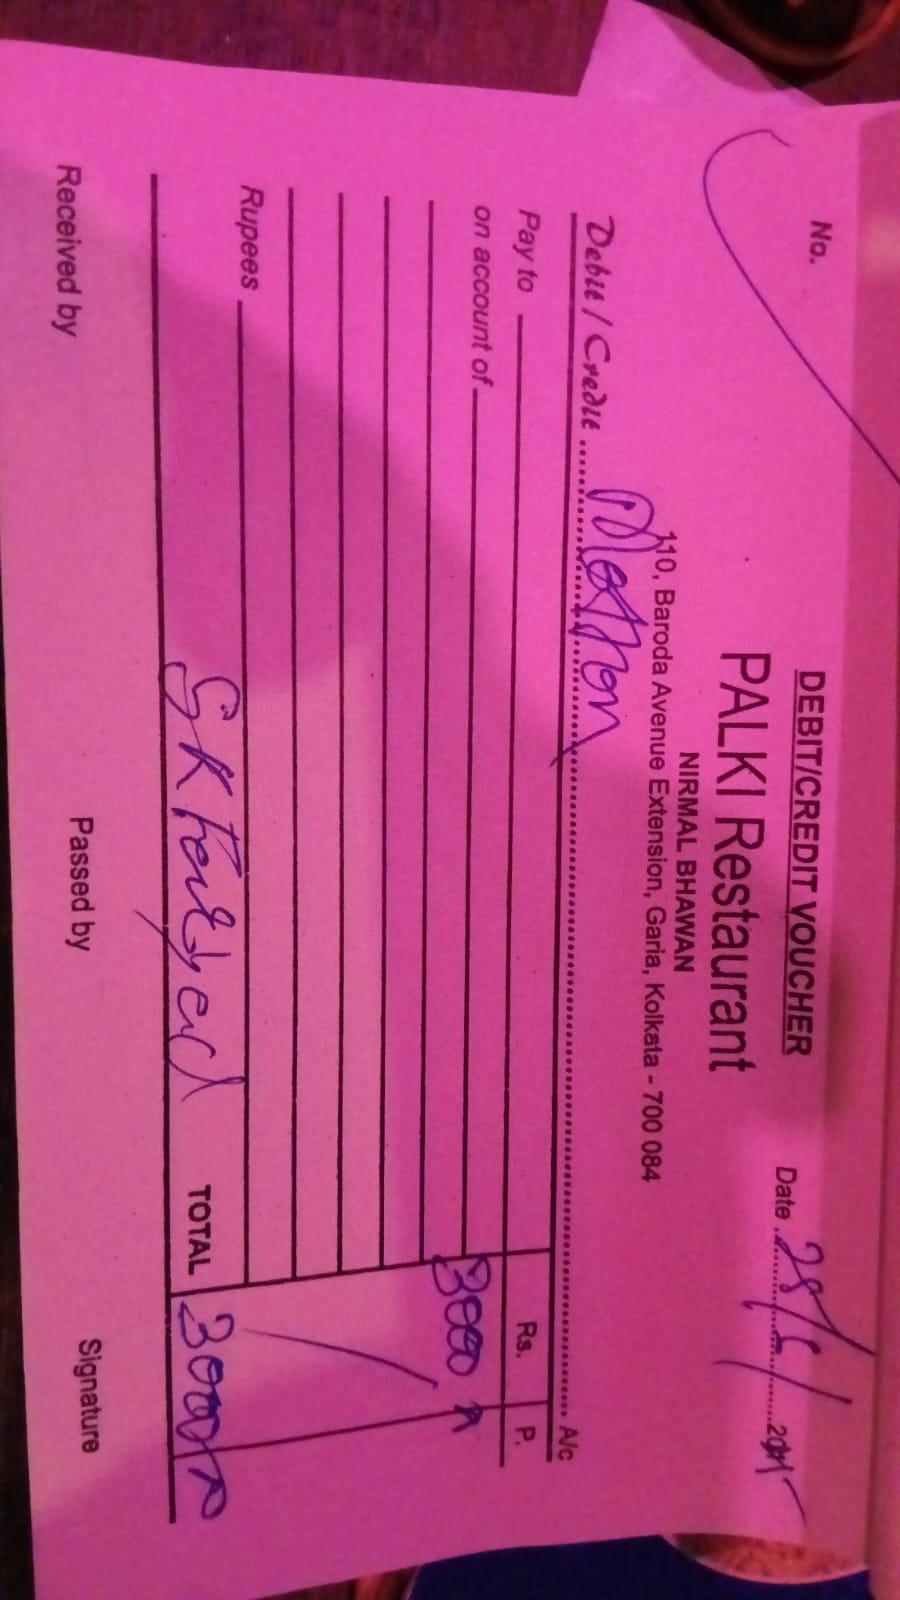 DEBIT/CREDIT VOUCHER
No.
Date 28/6/
PALKI Restaurant
NIRMAL BHAWAN
110, Baroda Avenue Extension, Garia, Kolkata - 700 084
Debit / Credit Motton A/c
Pay to Rs. P.
on account of
3000
Rupees
SK TOTAL 3000
Received by Passed by Signature